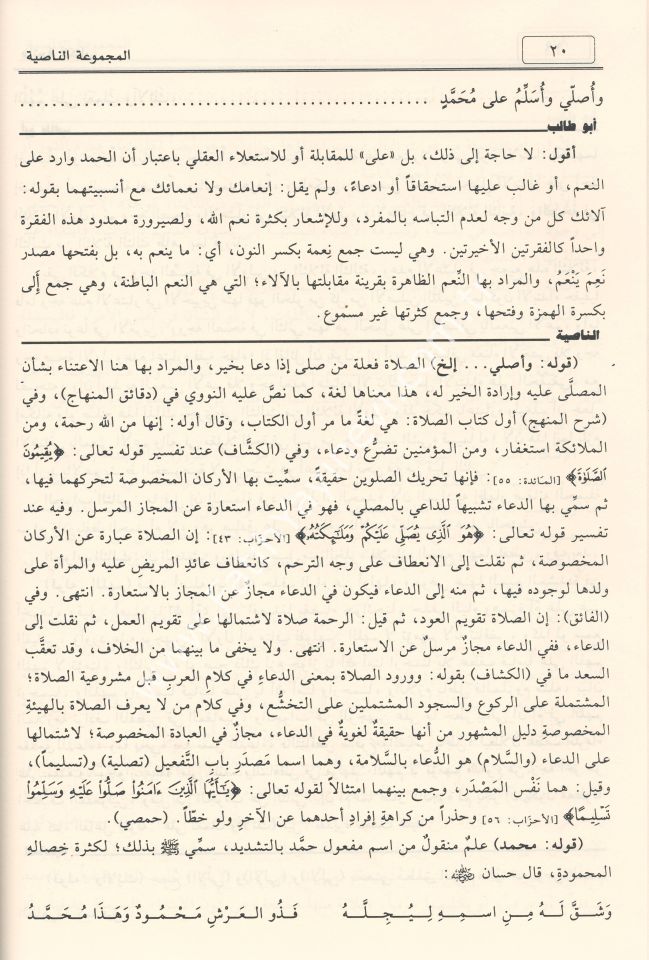 ٢٠
المجموعة الناصية
وأُصلّي وأُسَلِّمُ على مُحَمَّدٍ ..................................................
أبو طالب
أقول: لا حاجة إلى ذلك، بل «على» للمقابلة أو للاستعلاء العقلي باعتبار أن الحمد وارد على
النعم، أو غالب عليها استحقاقاً أو ادعاءً، ولم يقل: إنعامك ولا نعمائك مع أنسبيتهما بقوله:
آلائك كل من وجه لعدم التباسه بالمفرد، وللإشعار بكثرة نعم الله، ولصيرورة ممدود هذه الفقرة
واحداً كالفقرتين الأخيرتين. وهي ليست جمع نِعمة بكسر النون، أي: ما ينعم به، بل بفتحها مصدر
نَعِمَ يَنْعَمُ، والمراد بها النِّعم الظاهرة بقرينة مقابلتها بالآلاء؛ التي هي النعم الباطنة، وهي جمع إلَى
بكسرة الهمزة وفتحها، وجمع كثرتها غير مسْموع.
الناصية
(قوله: وأصلي... إلخ) الصلاة فعلة من صلى إذا دعا بخير، والمراد بها هنا الاعتناء بشأن
المصلَّى عليه وإرادة الخير له، هذا معناها لغة، كما نصَّ عليه النووي في (دقائق المنهاج)، وفي
(شرح المنهج) أول كتاب الصلاة: هي لغةً ما مر أول الكتاب، وقال أوله: إنها من الله رحمة، ومن
الملائكة استغفار، ومن المؤمنين تضرُّع ودعاء، وفي (الكشَّاف) عند تفسير قوله تعالى: ﴿يُقِيمُونَ
ٱلصَّلَوٰةَ﴾ [المائدة: ٥٥]: فإنها تحريك الصلوين حقيقةً، سمِّيت بها الأركان المخصوصة لتحركهما فيها،
ثم سمِّي بها الدعاء تشبيهاً للداعي بالمصلي، فهو في الدعاء استعارة عن المجاز المرسل. وفيه عند
تفسير قوله تعالى: ﴿هُوَ ٱلَّذِى يُصَلِّى عَلَيْكُمْ وَمَلَٰٓئِكَتُهُۥ﴾ [الأحزاب: ٤٣]: إن الصلاة عبارة عن الأركان
المخصوصة، ثم نقلت إلى الانعطاف على وجه الترحم، كانعطاف عائدِ المريضِ عليه والمرأة على
ولدها لوجوده فيها، ثم منه إلى الدعاء فيكون في الدعاء مجازٌ عن المجاز بالاستعارة. انتهى. وفي
(الفائق): إن الصلاة تقويم العود، ثم قيل: الرحمة صلاة لاشتمالها على تقويم العمل، ثم نقلت إلى
الدعاء، ففي الدعاء مجازٌ مرسلٌ عن الاستعارة. انتهى. ولا يخفى ما بينهما من الخلاف، وقد تعقَّب
السعد ما في (الكشاف) بقوله: وورود الصلاة بمعنى الدعاءِ في كلامِ العربِ قبل مشروعية الصلاة؛
المشتملة على الركوع والسجود المشتملين على التخشُّع، وفي كلام من لا يعرف الصلاة بالهيئةِ
المخصوصةِ دليل المشهور من أنها حقيقةٌ لغويةٌ في الدعاء، مجازٌ في العبادة المخصوصة؛ لاشتمالها
على الدعاء (والسلام) هو الدُّعاء بالسَّلامة، وهما اسما مَصْدَرِ بابِ التَّفعيل (تصلية) و(تسليماً)،
وقيل: هما نَفْس المَصْدَر، وجمع بينهما امتثالاً لقوله تعالى: ﴿يَٰٓأَيُّهَا ٱلَّذِينَ ءَامَنُوا۟ صَلُّوا۟ عَلَيْهِ وَسَلِّمُوا۟
تَسْلِيمًا﴾ [الأحزاب: ٥٦] وحذراً من كراهةِ إفرادِ أحدهما عن الآخرِ ولو خطّاً. (حمصي).
(قوله: محمد) علمٌ منقولٌ من اسم مفعول حمَّد بالتشديد، سمِّي ﷺ بذلك؛ لكثرة خِصاله
المحمودةِ، قال حسان رضي الله عنه:
وَشَقَّ لَهُ مِنِ اسمِهِ لِيُجِلَّهُ فَذُو العَرْشِ مَحْمُودٌ وَهَذَا مُحَمَّدُ